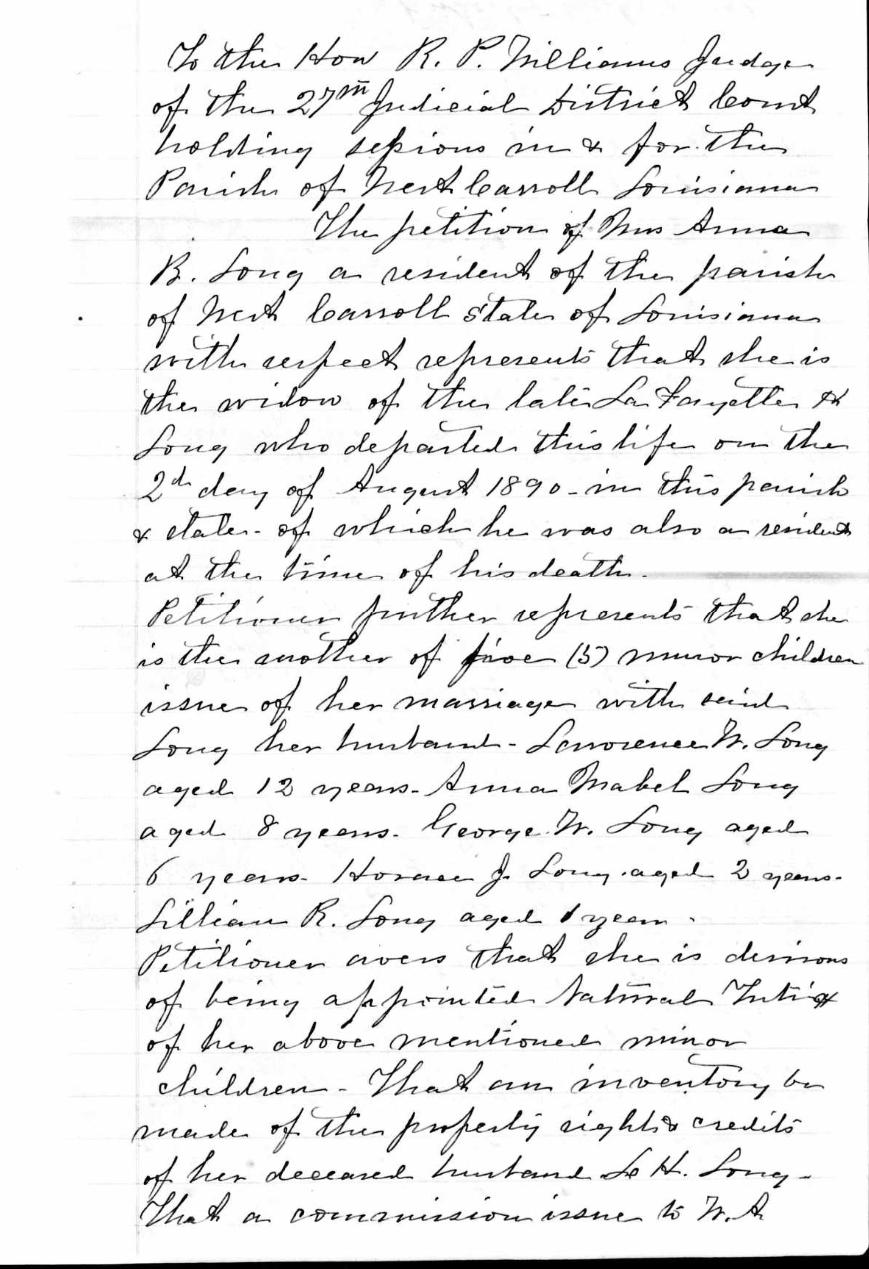 To the Hon R. P. Williams Judge
of the 27th Judicial District Court
holding sessions in & for the
Parish of West Carroll Louisiana
The petition of Mrs Anna
B. Long a resident of the parish
of West Carroll State of Louisiana
with respect represents that she is
the widow of the late La Fayette H
Long who departed this life on the
2d day of August 1890 - in this parish
& state - of which he was also a resident
at the time of his death.
Petitioner further represents that she
is the mother of five (5) minor children
issue of her marriage with said
Long her husband - Lawrence W. Long
aged 12 years - Anna Mabel Long
aged 8 years - George W. Long aged
6 years - Horace J. Long aged 2 years -
Lillian R. Long aged 1 year -
Petitioner avers that she is desirous
of being appointed Natural Tutrix
of her above mentioned minor
children - That an inventory be
made of the property rights & credits
of her deceased husband L H. Long -
That a commission issue to W. A